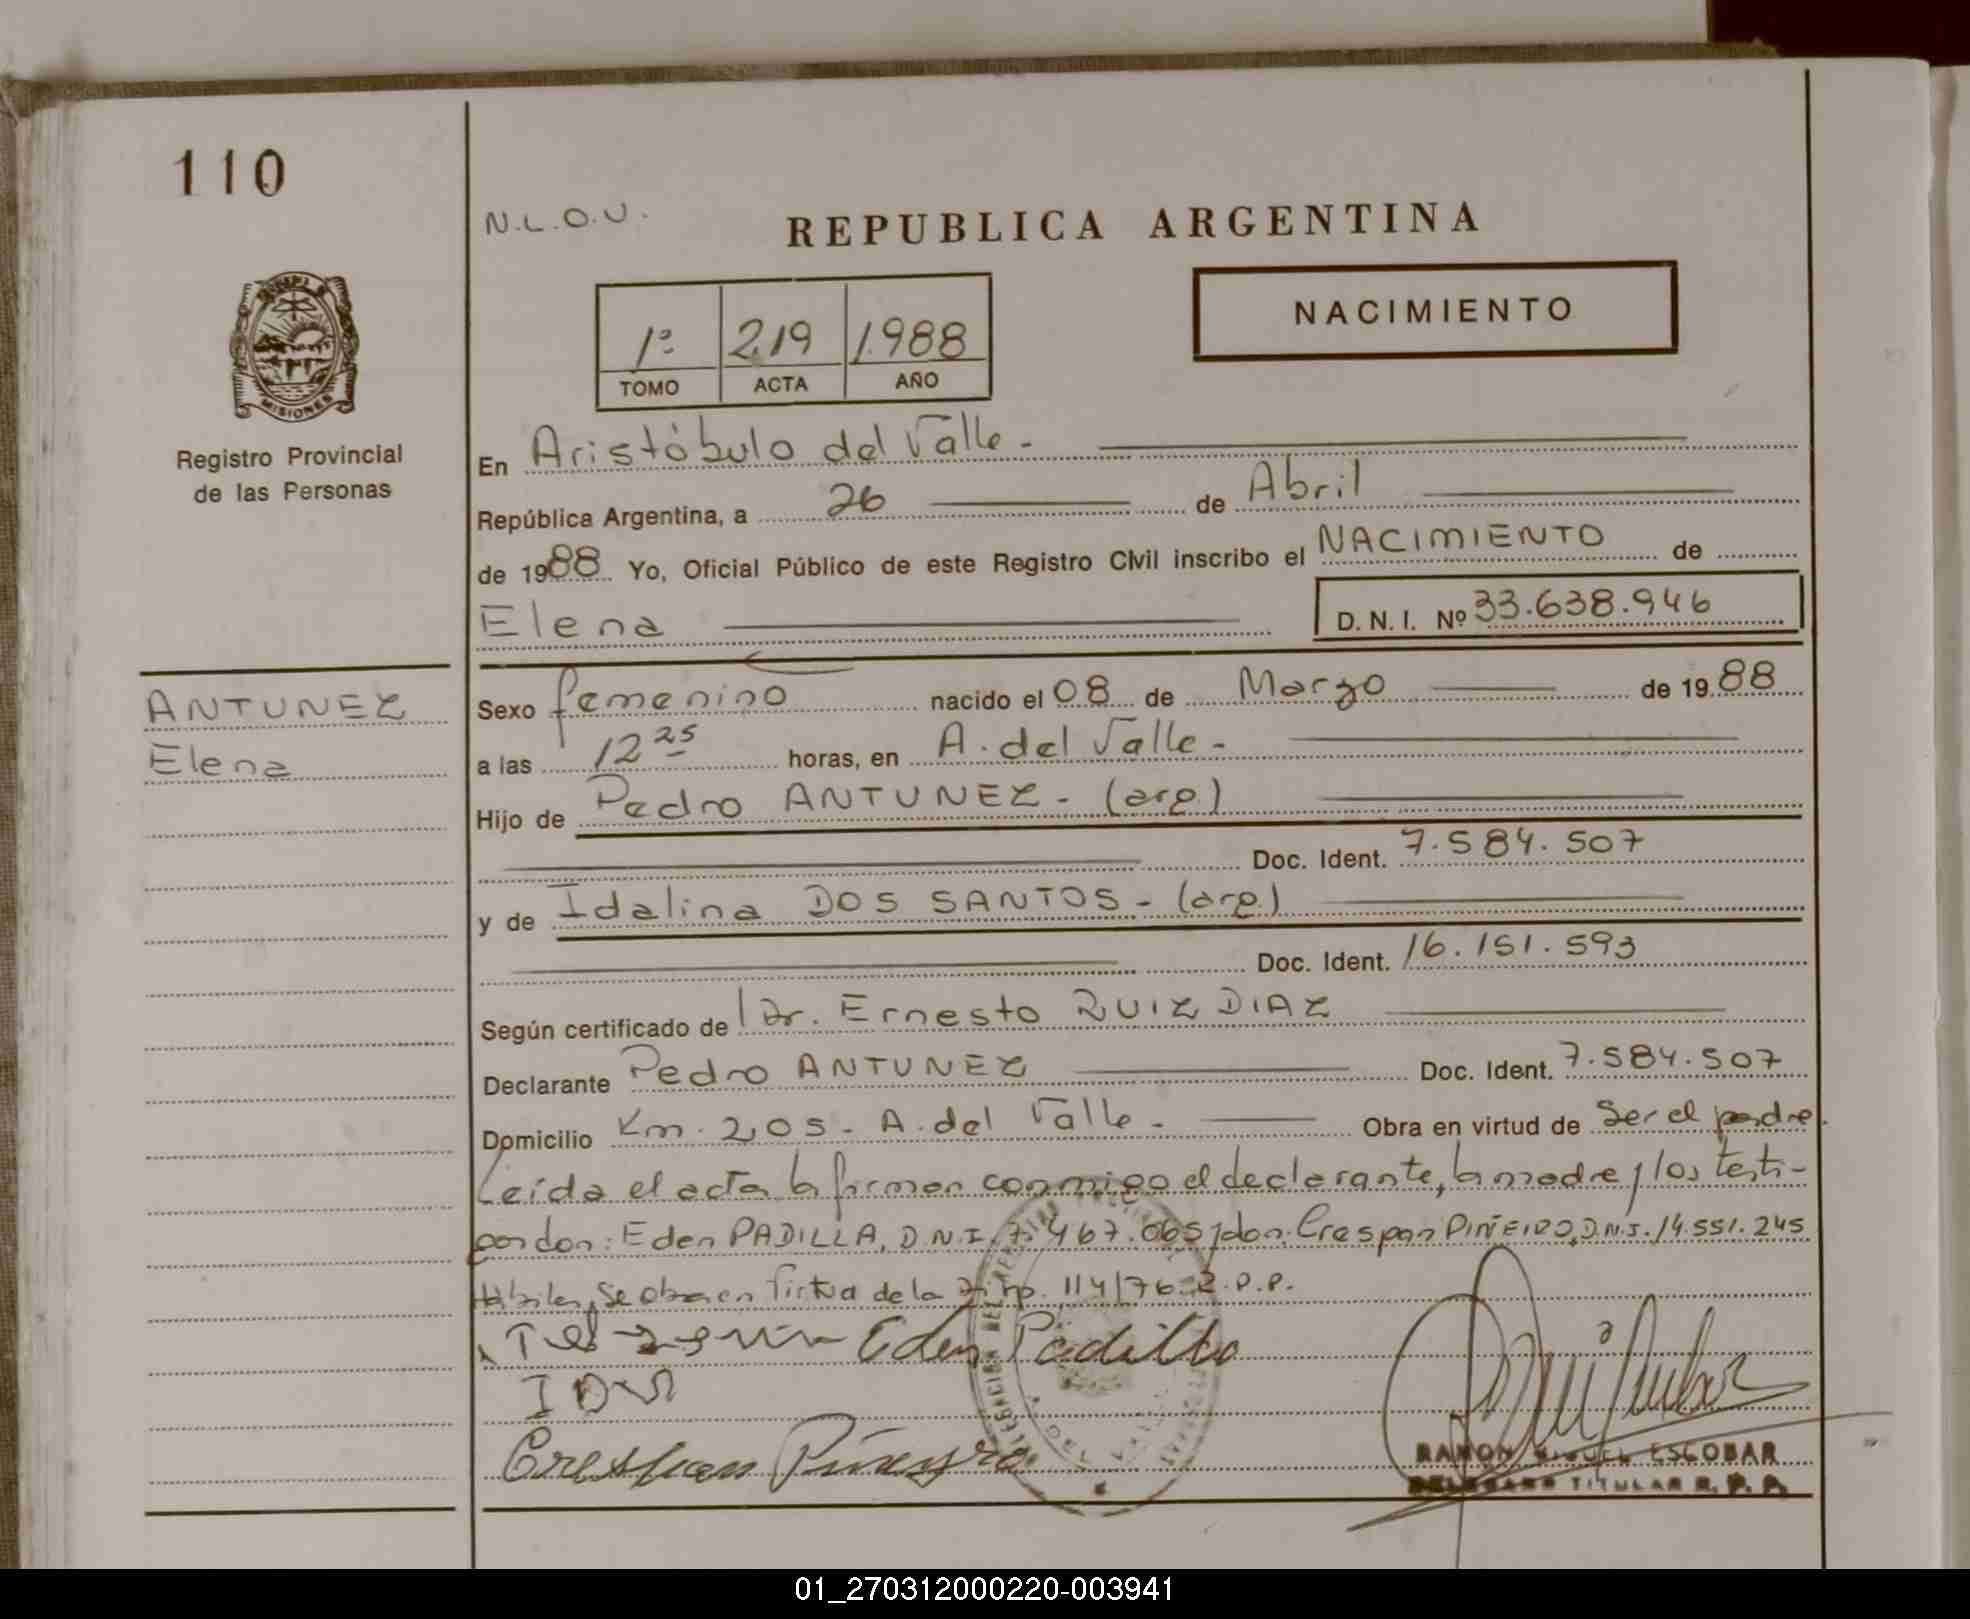 110
N.L.O.U.
REPUBLICA ARGENTINA
1º 219 1.988
TOMO ACTA AÑO
NACIMIENTO
MISIONES
Registro Provincial
de las Personas
En Aristóbulo del Valle -
República Argentina, a 26 de Abril
de 1988 Yo, Oficial Público de este Registro Civil inscribo el NACIMIENTO de
Elena D. N. I. Nº 33.638.946
ANTUNEZ
Elena
Sexo femenino nacido el 08 de Marzo de 1988
a las 12 25 horas, en A. del Valle -
Hijo de Pedro ANTUNEZ - (arg.)
Doc. Ident. 7.584.507
y de Idalina DOS SANTOS - (arg.)
Doc. Ident. 16.151.593
Según certificado de Dr. Ernesto RUIZ DIAZ
Declarante Pedro ANTUNEZ Doc. Ident. 7.584.507
Domicilio Km. 205 - A. del Valle - Obra en virtud de Ser el padre.
Leída el acta la firman conmigo el declarante, la madre y los testi-
gos don: Eden PADILLA, D.N.I. 7.467.065 y don: Crespan PIÑEIRO, D.N.I. 14.551.245
Hábiles, Se obra en Virtud de la Disp. 114/76 R.P.P.
Eden Padilla
Crespan Pineyro
RAMON MIGUEL ESCOBAR
DELEGADO TITULAR R. P. P.
01_270312000220-003941